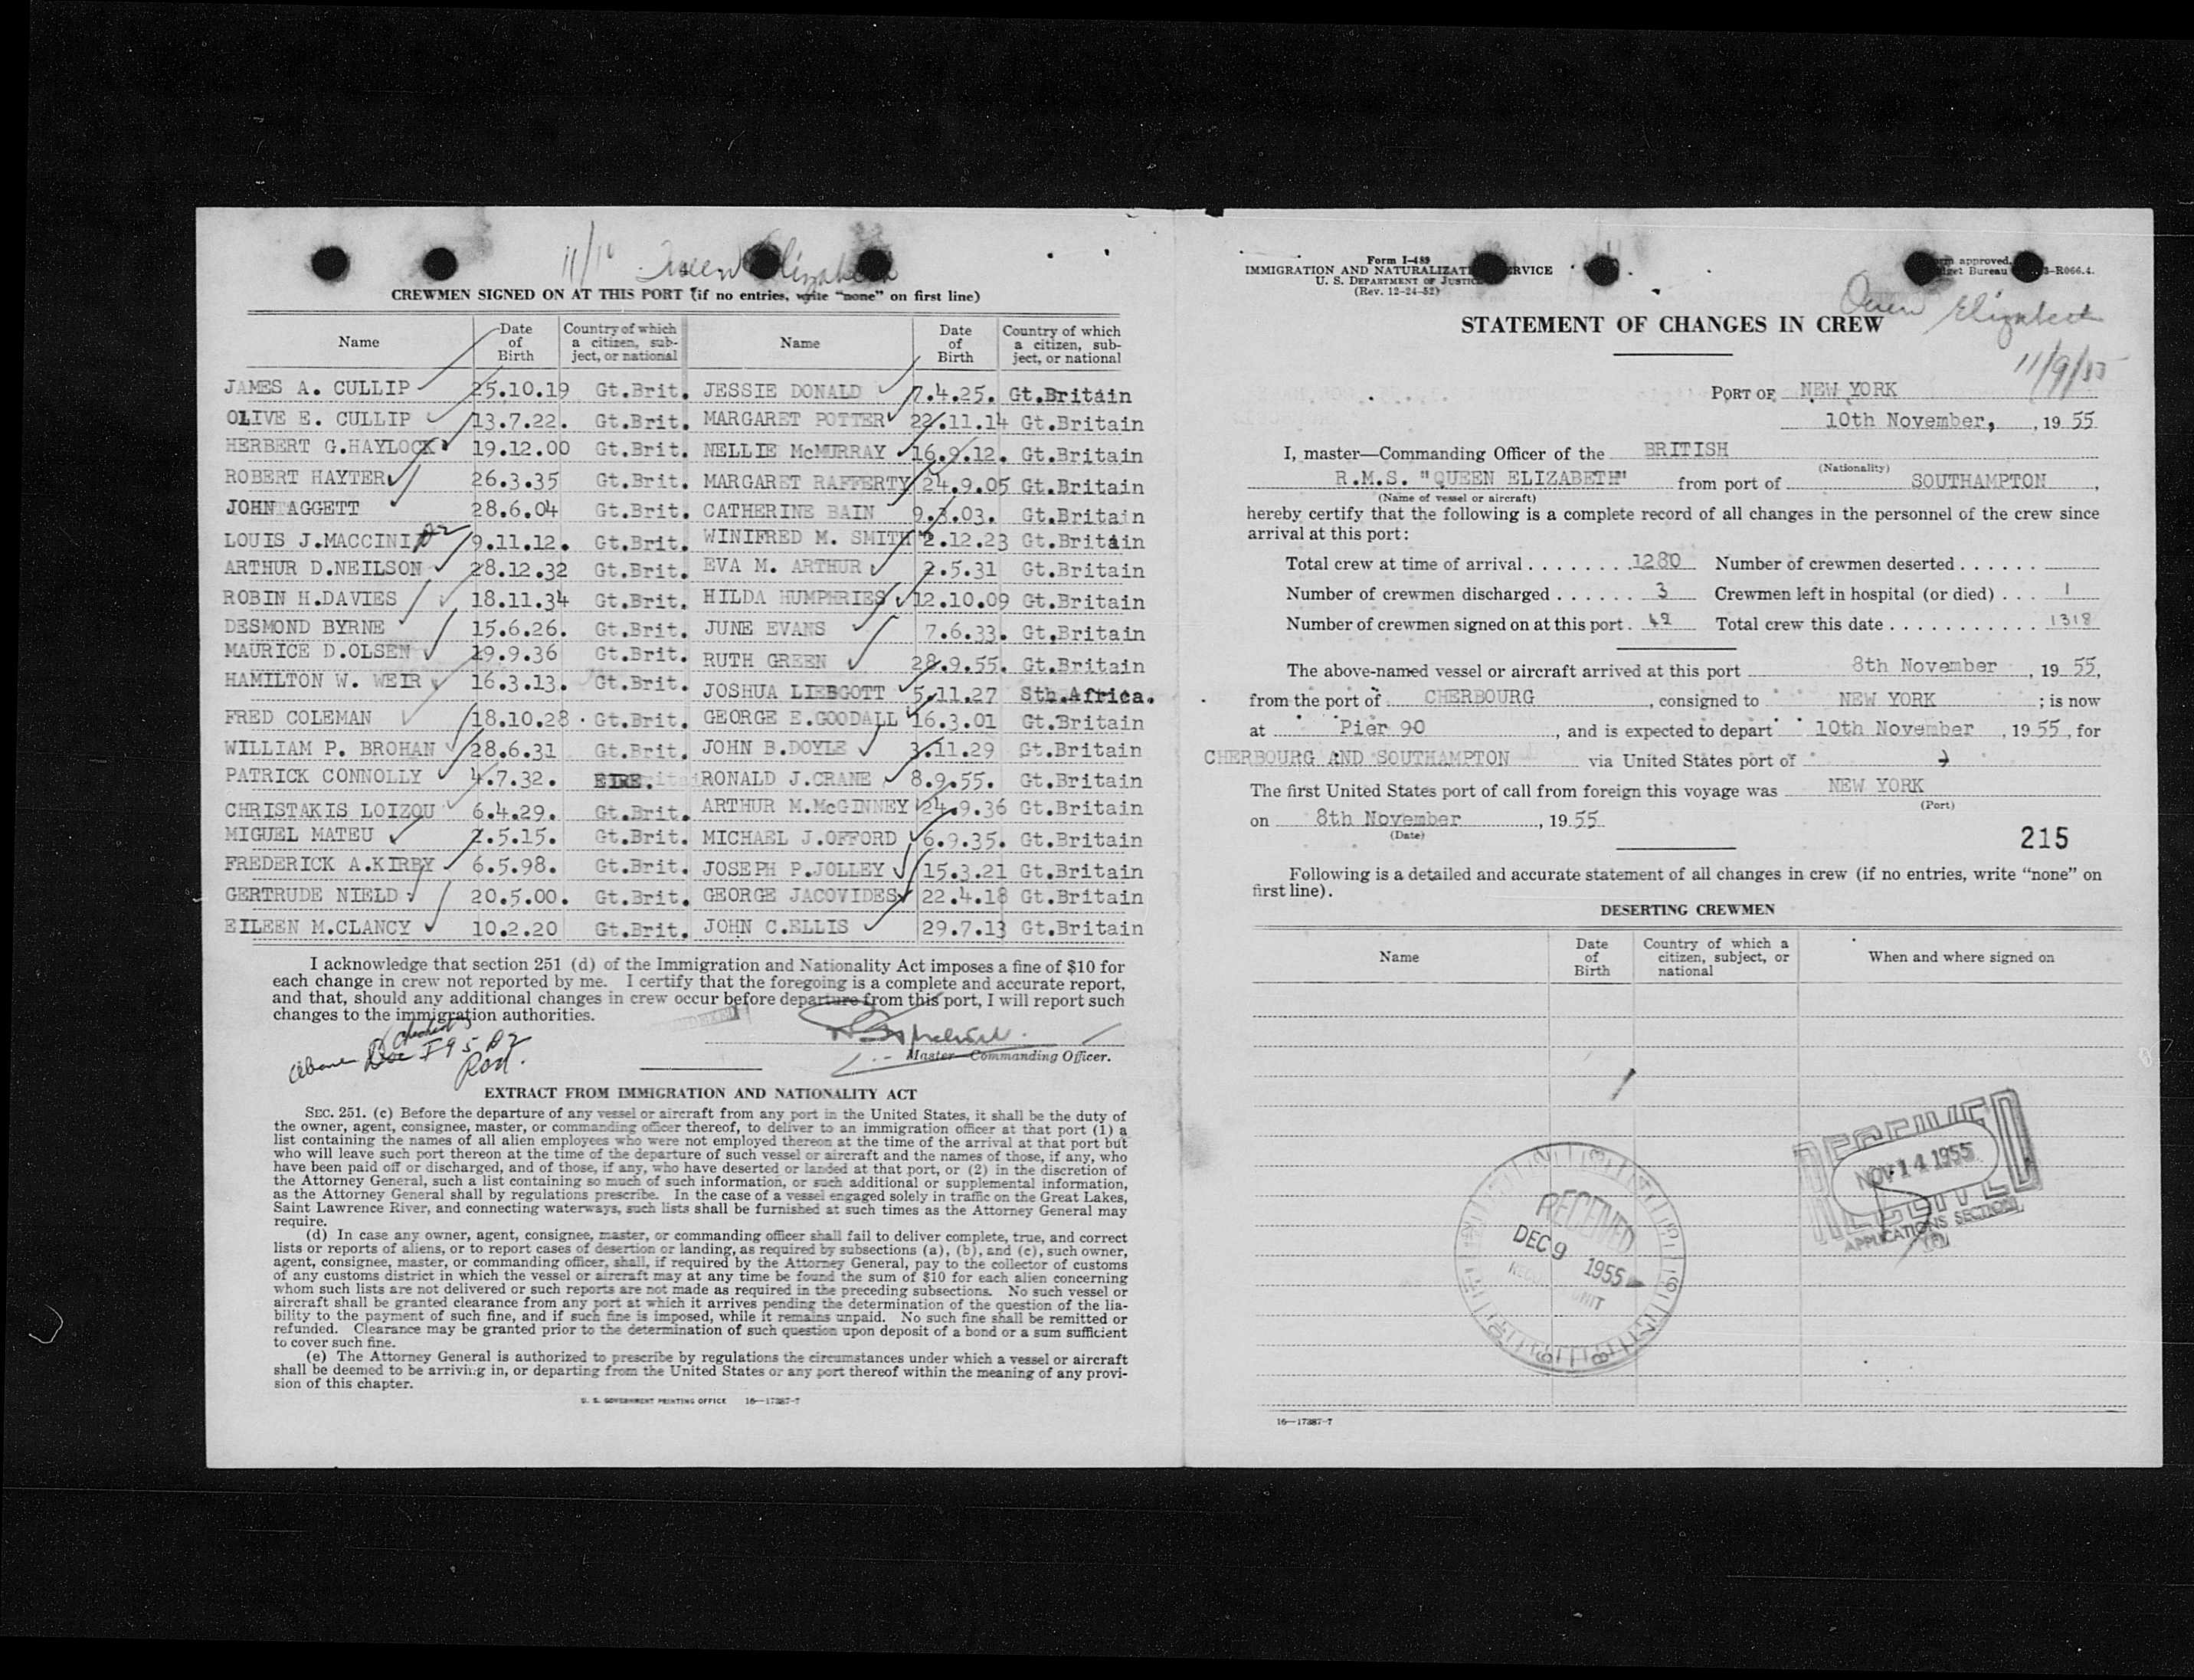 11/10 Queen Elizabeth
CREWMEN SIGNED ON AT THIS PORT (if no entries, write "none" on first line)
Name Date of Birth Country of which a citizen, subject, or national Name Date of Birth Country of which a citizen, subject, or national
JAMES A. CULLIP 25.10.19 Gt.Brit. JESSIE DONALD 7.4.25. Gt.Britain
OLIVE E. CULLIP 13.7.22. Gt.Brit. MARGARET POTTER 22.11.14 Gt.Britain
HERBERT G.HAYLOCK 19.12.00 Gt.Brit. NELLIE McMURRAY 16.9.12. Gt.Britain
ROBERT HAYTER 26.3.35 Gt.Brit. MARGARET RAFFERTY 24.9.05 Gt.Britain
JOHN TAGGETT 28.6.04 Gt.Brit. CATHERINE BAIN 9.3.03. Gt.Britain
LOUIS J.MACCINI 9.11.12. Gt.Brit. WINIFRED M. SMITH 2.12.23 Gt.Britain
ARTHUR D.NEILSON 28.12.32 Gt.Brit. EVA M. ARTHUR 2.5.31 Gt.Britain
ROBIN H.DAVIES 18.11.34 Gt.Brit. HILDA HUMPHRIES 12.10.09 Gt.Britain
DESMOND BYRNE 15.6.26. Gt.Brit. JUNE EVANS 7.6.33. Gt.Britain
MAURICE D.OLSEN 19.9.36 Gt.Brit. RUTH GREEN 28.9.55. Gt.Britain
HAMILTON W. WEIR 16.3.13. Gt.Brit. JOSHUA LIEBGOTT 5.11.27 Sth.Africa.
FRED COLEMAN 18.10.28 Gt.Brit. GEORGE E.GOODALL 16.3.01 Gt.Britain
WILLIAM P. BROHAN 28.6.31 Gt.Brit. JOHN B.DOYLE 3.11.29 Gt.Britain
PATRICK CONNOLLY 4.7.32. EIRE. RONALD J.CRANE 8.9.55. Gt.Britain
CHRISTAKIS LOIZOU 6.4.29. Gt.Brit. ARTHUR M.McGINNEY 24.9.36 Gt.Britain
MIGUEL MATEU 2.5.15. Gt.Brit. MICHAEL J.OFFORD 6.9.35. Gt.Britain
FREDERICK A.KIRBY 6.5.98. Gt.Brit. JOSEPH P.JOLLEY 15.3.21 Gt.Britain
GERTRUDE NIELD 20.5.00. Gt.Brit. GEORGE JACOVIDES 22.4.18 Gt.Britain
EILEEN M.CLANCY 10.2.20 Gt.Brit. JOHN C.ELLIS 29.7.13 Gt.Britain
I acknowledge that section 251 (d) of the Immigration and Nationality Act imposes a fine of $10 for
each change in crew not reported by me. I certify that the foregoing is a complete and accurate report,
and that, should any additional changes in crew occur before departure from this port, I will report such
changes to the immigration authorities.
Master—Commanding Officer.
EXTRACT FROM IMMIGRATION AND NATIONALITY ACT
SEC. 251. (c) Before the departure of any vessel or aircraft from any port in the United States, it shall be the duty of
the owner, agent, consignee, master, or commanding officer thereof, to deliver to an immigration officer at that port (1) a
list containing the names of all alien employees who were not employed thereon at the time of the arrival at that port but
who will leave such port thereon at the time of the departure of such vessel or aircraft and the names of those, if any, who
have been paid off or discharged, and of those, if any, who have deserted or landed at that port, or (2) in the discretion of
the Attorney General, such a list containing so much of such information, or such additional or supplemental information,
as the Attorney General shall by regulations prescribe. In the case of a vessel engaged solely in traffic on the Great Lakes,
Saint Lawrence River, and connecting waterways, such lists shall be furnished at such times as the Attorney General may
require.
(d) In case any owner, agent, consignee, master, or commanding officer shall fail to deliver complete, true, and correct
lists or reports of aliens, or to report cases of desertion or landing, as required by subsections (a), (b), and (c), such owner,
agent, consignee, master, or commanding officer, shall, if required by the Attorney General, pay to the collector of customs
of any customs district in which the vessel or aircraft may at any time be found the sum of $10 for each alien concerning
whom such lists are not delivered or such reports are not made as required in the preceding subsections. No such vessel or
aircraft shall be granted clearance from any port at which it arrives pending the determination of the question of the lia-
bility to the payment of such fine, and if such fine is imposed, while it remains unpaid. No such fine shall be remitted or
refunded. Clearance may be granted prior to the determination of such question upon deposit of a bond or a sum sufficient
to cover such fine.
(e) The Attorney General is authorized to prescribe by regulations the circumstances under which a vessel or aircraft
shall be deemed to be arriving in, or departing from the United States or any port thereof within the meaning of any provi-
sion of this chapter.
U. S. GOVERNMENT PRINTING OFFICE 16—17387-7
Form I-489
IMMIGRATION AND NATURALIZATION SERVICE
U. S. DEPARTMENT OF JUSTICE
(Rev. 12-24-52)
Form approved.
Budget Bureau 43-R066.4.
Queen Elizabeth
11/9/55
STATEMENT OF CHANGES IN CREW
PORT OF NEW YORK
10th November, , 19 55
I, master—Commanding Officer of the BRITISH
(Nationality)
R.M.S. "QUEEN ELIZABETH" from port of SOUTHAMPTON,
(Name of vessel or aircraft)
hereby certify that the following is a complete record of all changes in the personnel of the crew since
arrival at this port:
Total crew at time of arrival . . . . . . . . 1280 Number of crewmen deserted . . . . . .
Number of crewmen discharged . . . . . . 3 Crewmen left in hospital (or died) . . . 1
Number of crewmen signed on at this port . 42 Total crew this date . . . . . . . . . . . . 1318
The above-named vessel or aircraft arrived at this port 8th November , 19 55,
from the port of CHERBOURG , consigned to NEW YORK ; is now
at Pier 90 , and is expected to depart 10th November , 19 55 , for
CHERBOURG AND SOUTHAMPTON via United States port of
The first United States port of call from foreign this voyage was NEW YORK
(Port)
on 8th November , 19 55
(Date)
215
Following is a detailed and accurate statement of all changes in crew (if no entries, write "none" on
first line).
DESERTING CREWMEN
Name Date of Birth Country of which a citizen, subject, or national When and where signed on
RECEIVED
NOV 14 1955
APPLICATIONS SECTION
RECEIVED
DEC 9 1955
UNIT
16—17387-7